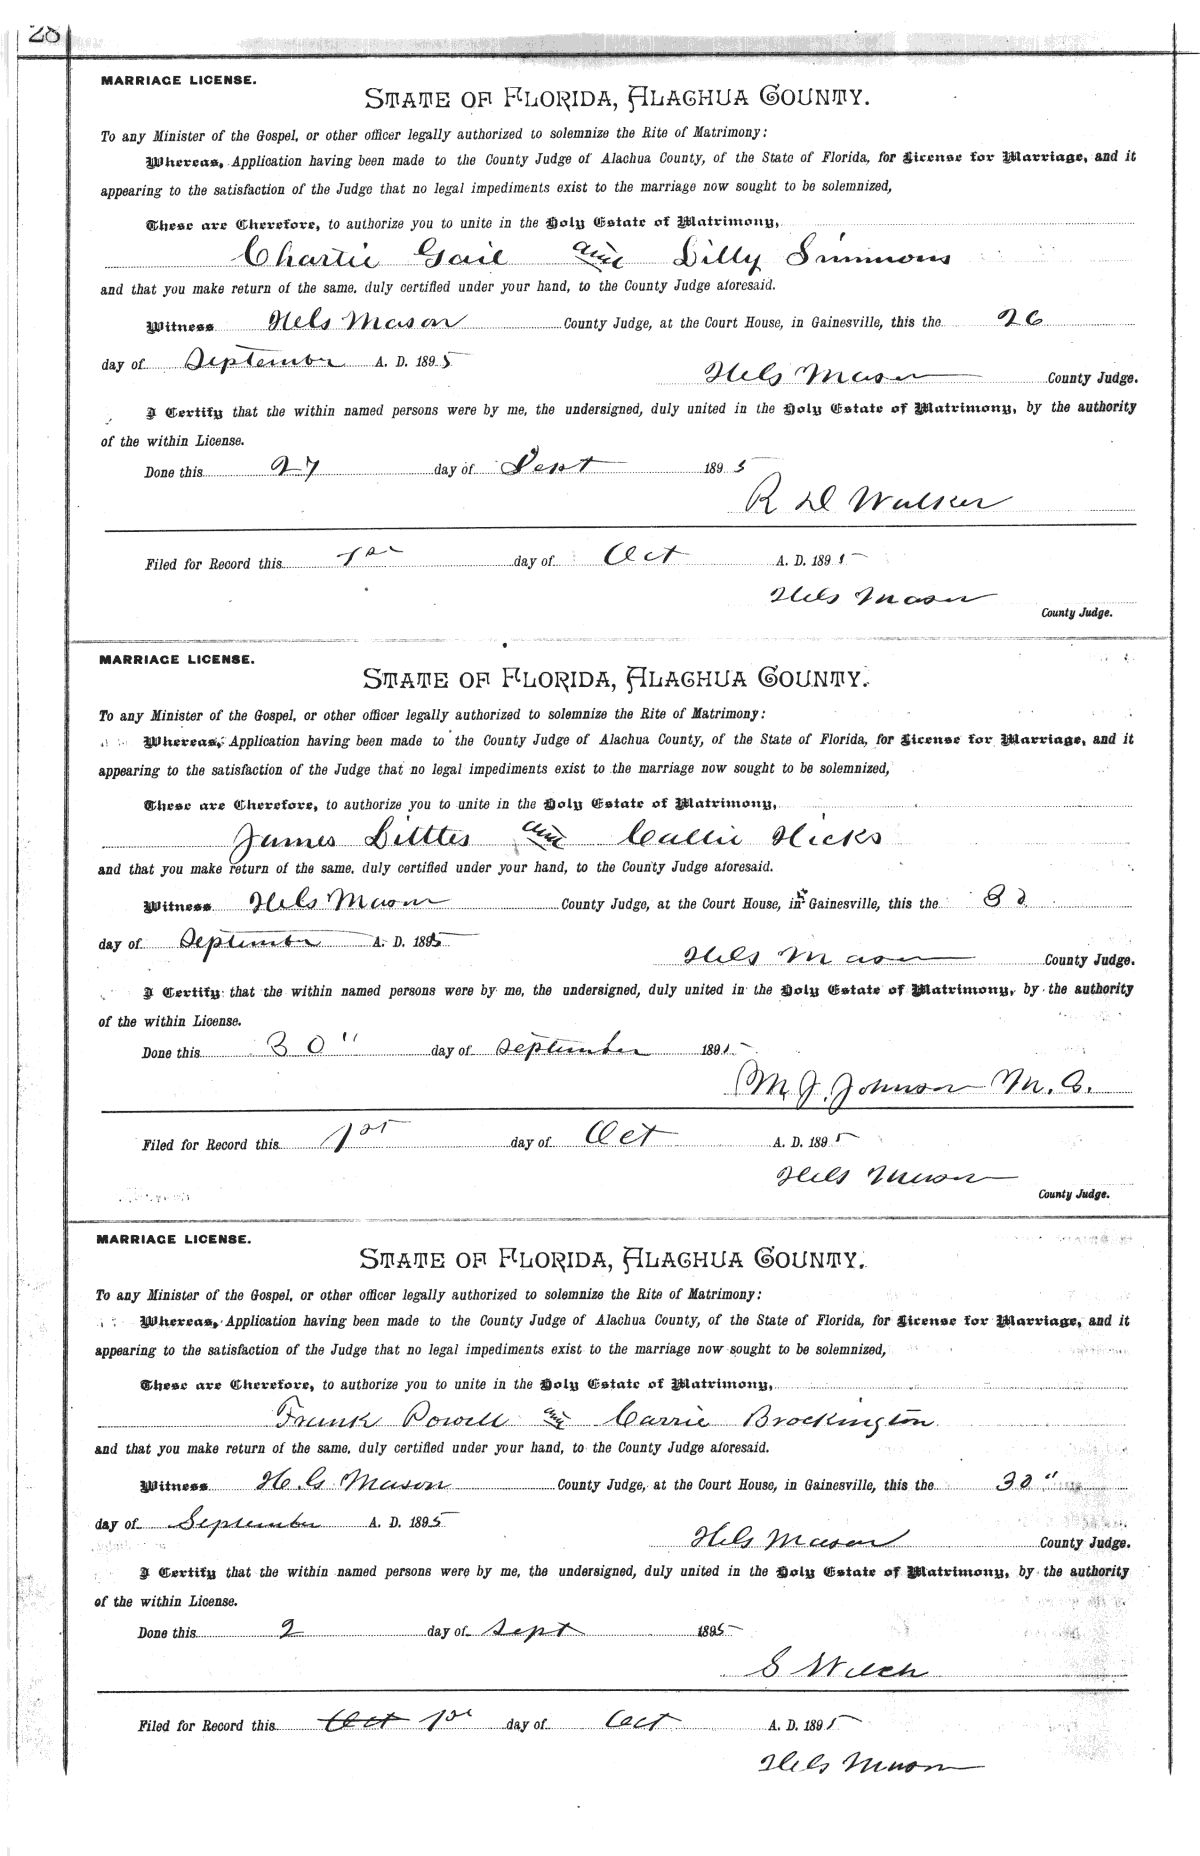 28
MARRIAGE LICENSE.
STATE OF FLORIDA, ALACHUA COUNTY.
To any Minister of the Gospel, or other officer legally authorized to solemnize the Rite of Matrimony:
Whereas, Application having been made to the County Judge of Alachua County, of the State of Florida, for License for Marriage, and it
appearing to the satisfaction of the Judge that no legal impediments exist to the marriage now sought to be solemnized,
These are Therefore, to authorize you to unite in the Holy Estate of Matrimony,
Charlie Gail and Lilly Simmons
and that you make return of the same, duly certified under your hand, to the County Judge aforesaid.
Witness H G Mason County Judge, at the Court House, in Gainesville, this the 26
day of September A. D. 1895
H G Mason County Judge.
I Certify that the within named persons were by me, the undersigned, duly united in the Holy Estate of Matrimony, by the authority
of the within License.
Done this 27 day of Sept 1895
R D Walker
Filed for Record this 1st day of Oct A. D. 1895
H G Mason
County Judge.
MARRIAGE LICENSE.
STATE OF FLORIDA, ALACHUA COUNTY.
To any Minister of the Gospel, or other officer legally authorized to solemnize the Rite of Matrimony:
Whereas, Application having been made to the County Judge of Alachua County, of the State of Florida, for License for Marriage, and it
appearing to the satisfaction of the Judge that no legal impediments exist to the marriage now sought to be solemnized,
These are Therefore, to authorize you to unite in the Holy Estate of Matrimony,
James Littles and Callie Hicks
and that you make return of the same, duly certified under your hand, to the County Judge aforesaid.
Witness H G Mason County Judge, at the Court House, in Gainesville, this the 30
day of September A. D. 1895
H G Mason County Judge.
I Certify that the within named persons were by me, the undersigned, duly united in the Holy Estate of Matrimony, by the authority
of the within License.
Done this 30" day of September 1895
M J. Johnson M. G.
Filed for Record this 1st day of Oct A. D. 1895
H G Mason
County Judge.
MARRIAGE LICENSE.
STATE OF FLORIDA, ALACHUA COUNTY.
To any Minister of the Gospel, or other officer legally authorized to solemnize the Rite of Matrimony:
Whereas, Application having been made to the County Judge of Alachua County, of the State of Florida, for License for Marriage, and it
appearing to the satisfaction of the Judge that no legal impediments exist to the marriage now sought to be solemnized,
These are Therefore, to authorize you to unite in the Holy Estate of Matrimony,
Frank Powell and Carrie Brockington
and that you make return of the same, duly certified under your hand, to the County Judge aforesaid.
Witness H. G Mason County Judge, at the Court House, in Gainesville, this the 30"
day of September A. D. 1895
H G Mason County Judge.
I Certify that the within named persons were by me, the undersigned, duly united in the Holy Estate of Matrimony, by the authority
of the within License.
Done this 2 day of Sept 1895
S Welch
Filed for Record this Oct 1st day of Oct A. D. 1895
H G Mason